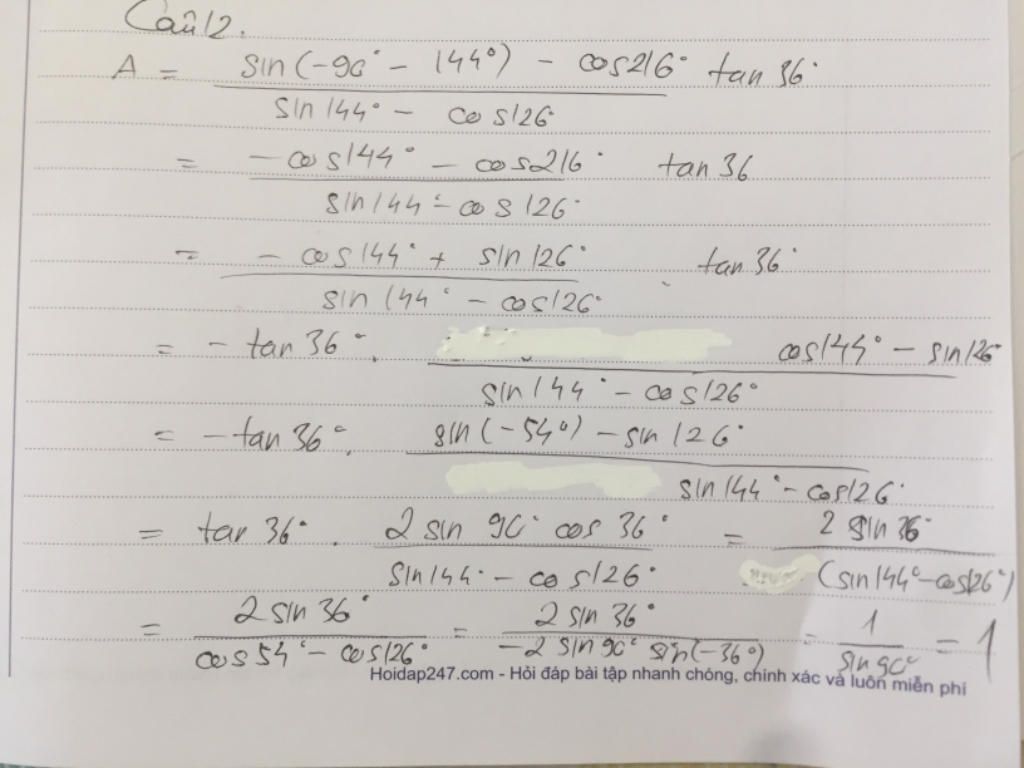 Câu 12.
A = (sin(-90° - 144°) - cos216°)/(sin144° - cos126°) tan36°
= (-cos144° - cos216°)/(sin144° - cos126°) tan36
= (-cos144° + sin126°)/(sin144° - cos126°) . tan36°
= - tan36° . (cos144° - sin126°)/(sin144° - cos126°)
= -tan36° . (sin(-54°) - sin126°)/(sin144° - cos126°)
= tan36° . (2 sin90° cos36°)/(sin144° - cos126°) = (2 sin36°)/((sin144° - cos126°))
= (2 sin36°)/(cos54° - cos126°) = (2 sin36°)/(-2 sin90° sin(-36°)) = 1/(sin90°) = 1
Hoidap247.com - Hỏi đáp bài tập nhanh chóng, chính xác và luôn miễn phí